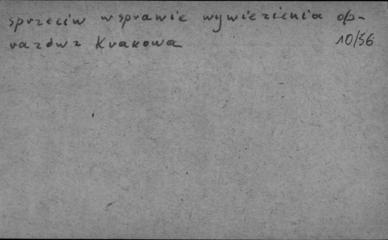 sprzeciw w sprawie wywiezienia ob-
razów z Krakowa
10/56